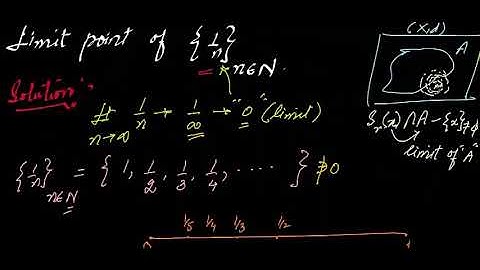 Limit point of {1/n} n∈N.
Solution:
lt n→∞ 1/n → 1/∞ → "0" (limit)
{1/n} n∈N = { 1, 1/2, 1/3, 1/4, ---- } ∌ 0
1/5 1/4 1/3 1/2
(X,d)
A
Sr(x) ∩ A - {x} ≠ φ
limit of "A"